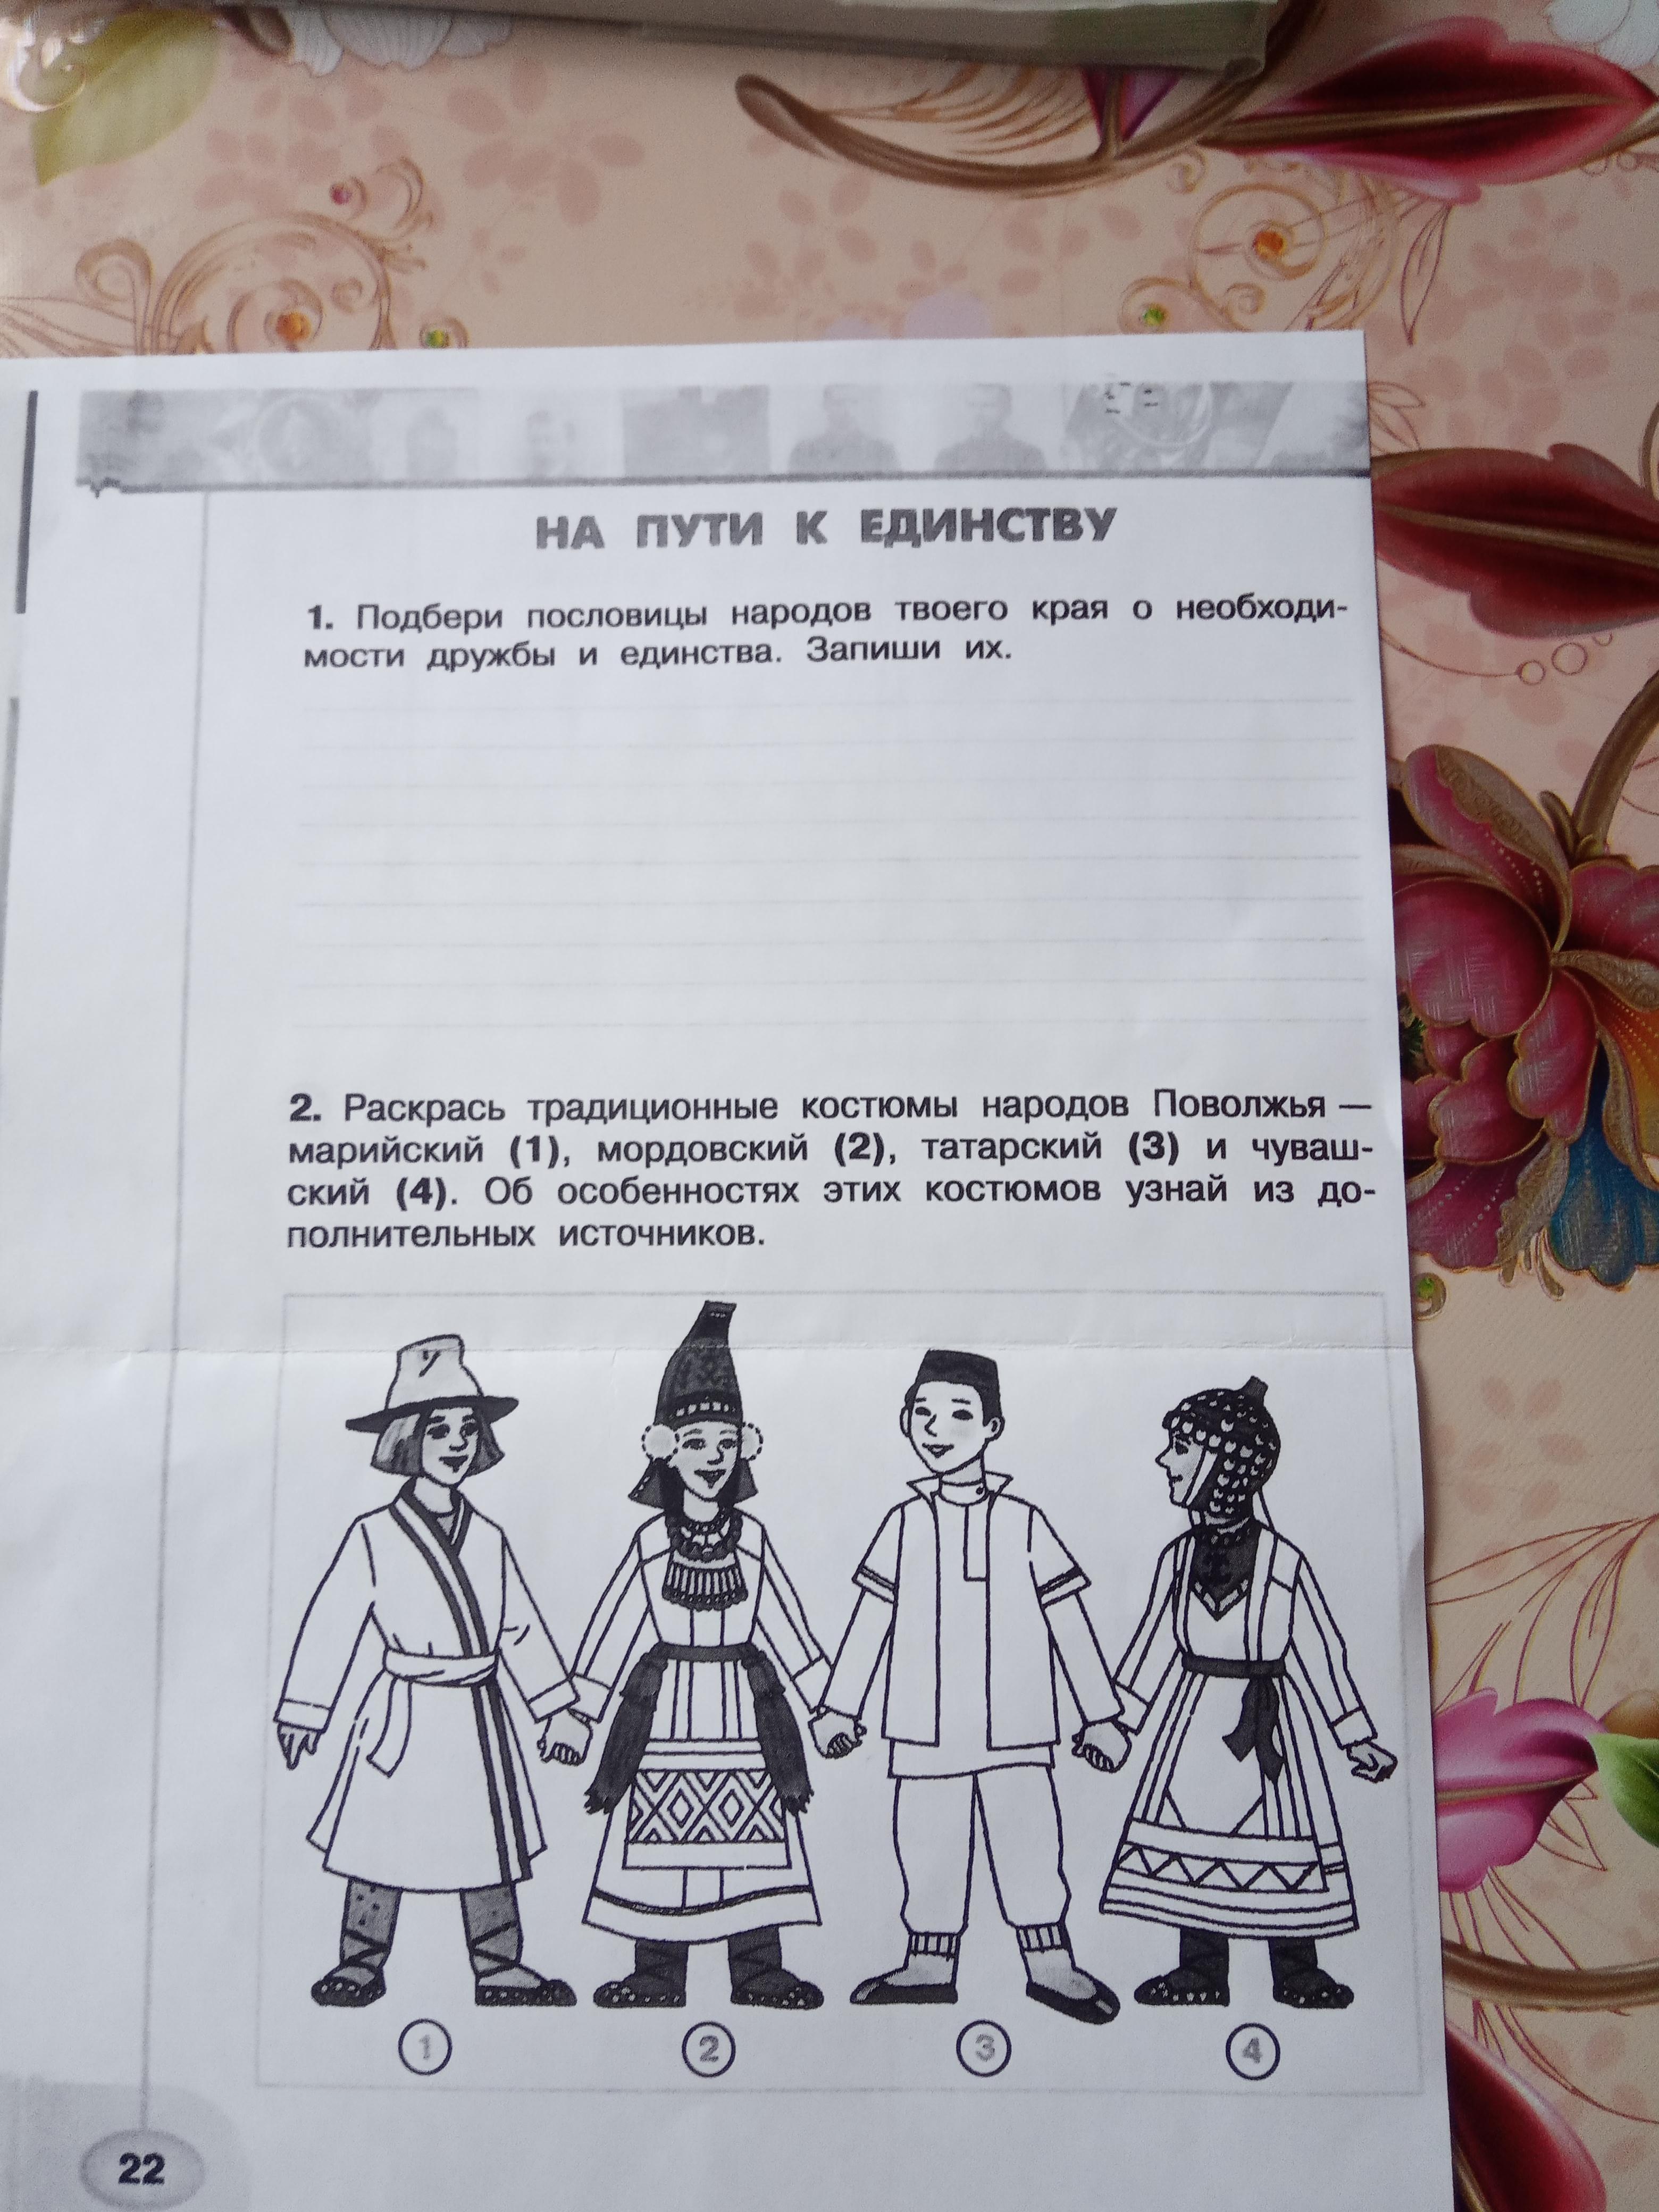 НА ПУТИ К ЕДИНСТВУ
1. Подбери пословицы народов твоего края о необходи-
мости дружбы и единства. Запиши их.
2. Раскрась традиционные костюмы народов Поволжья —
марийский (1), мордовский (2), татарский (3) и чуваш-
ский (4). Об особенностях этих костюмов узнай из до-
полнительных источников.
1 2 3 4
22